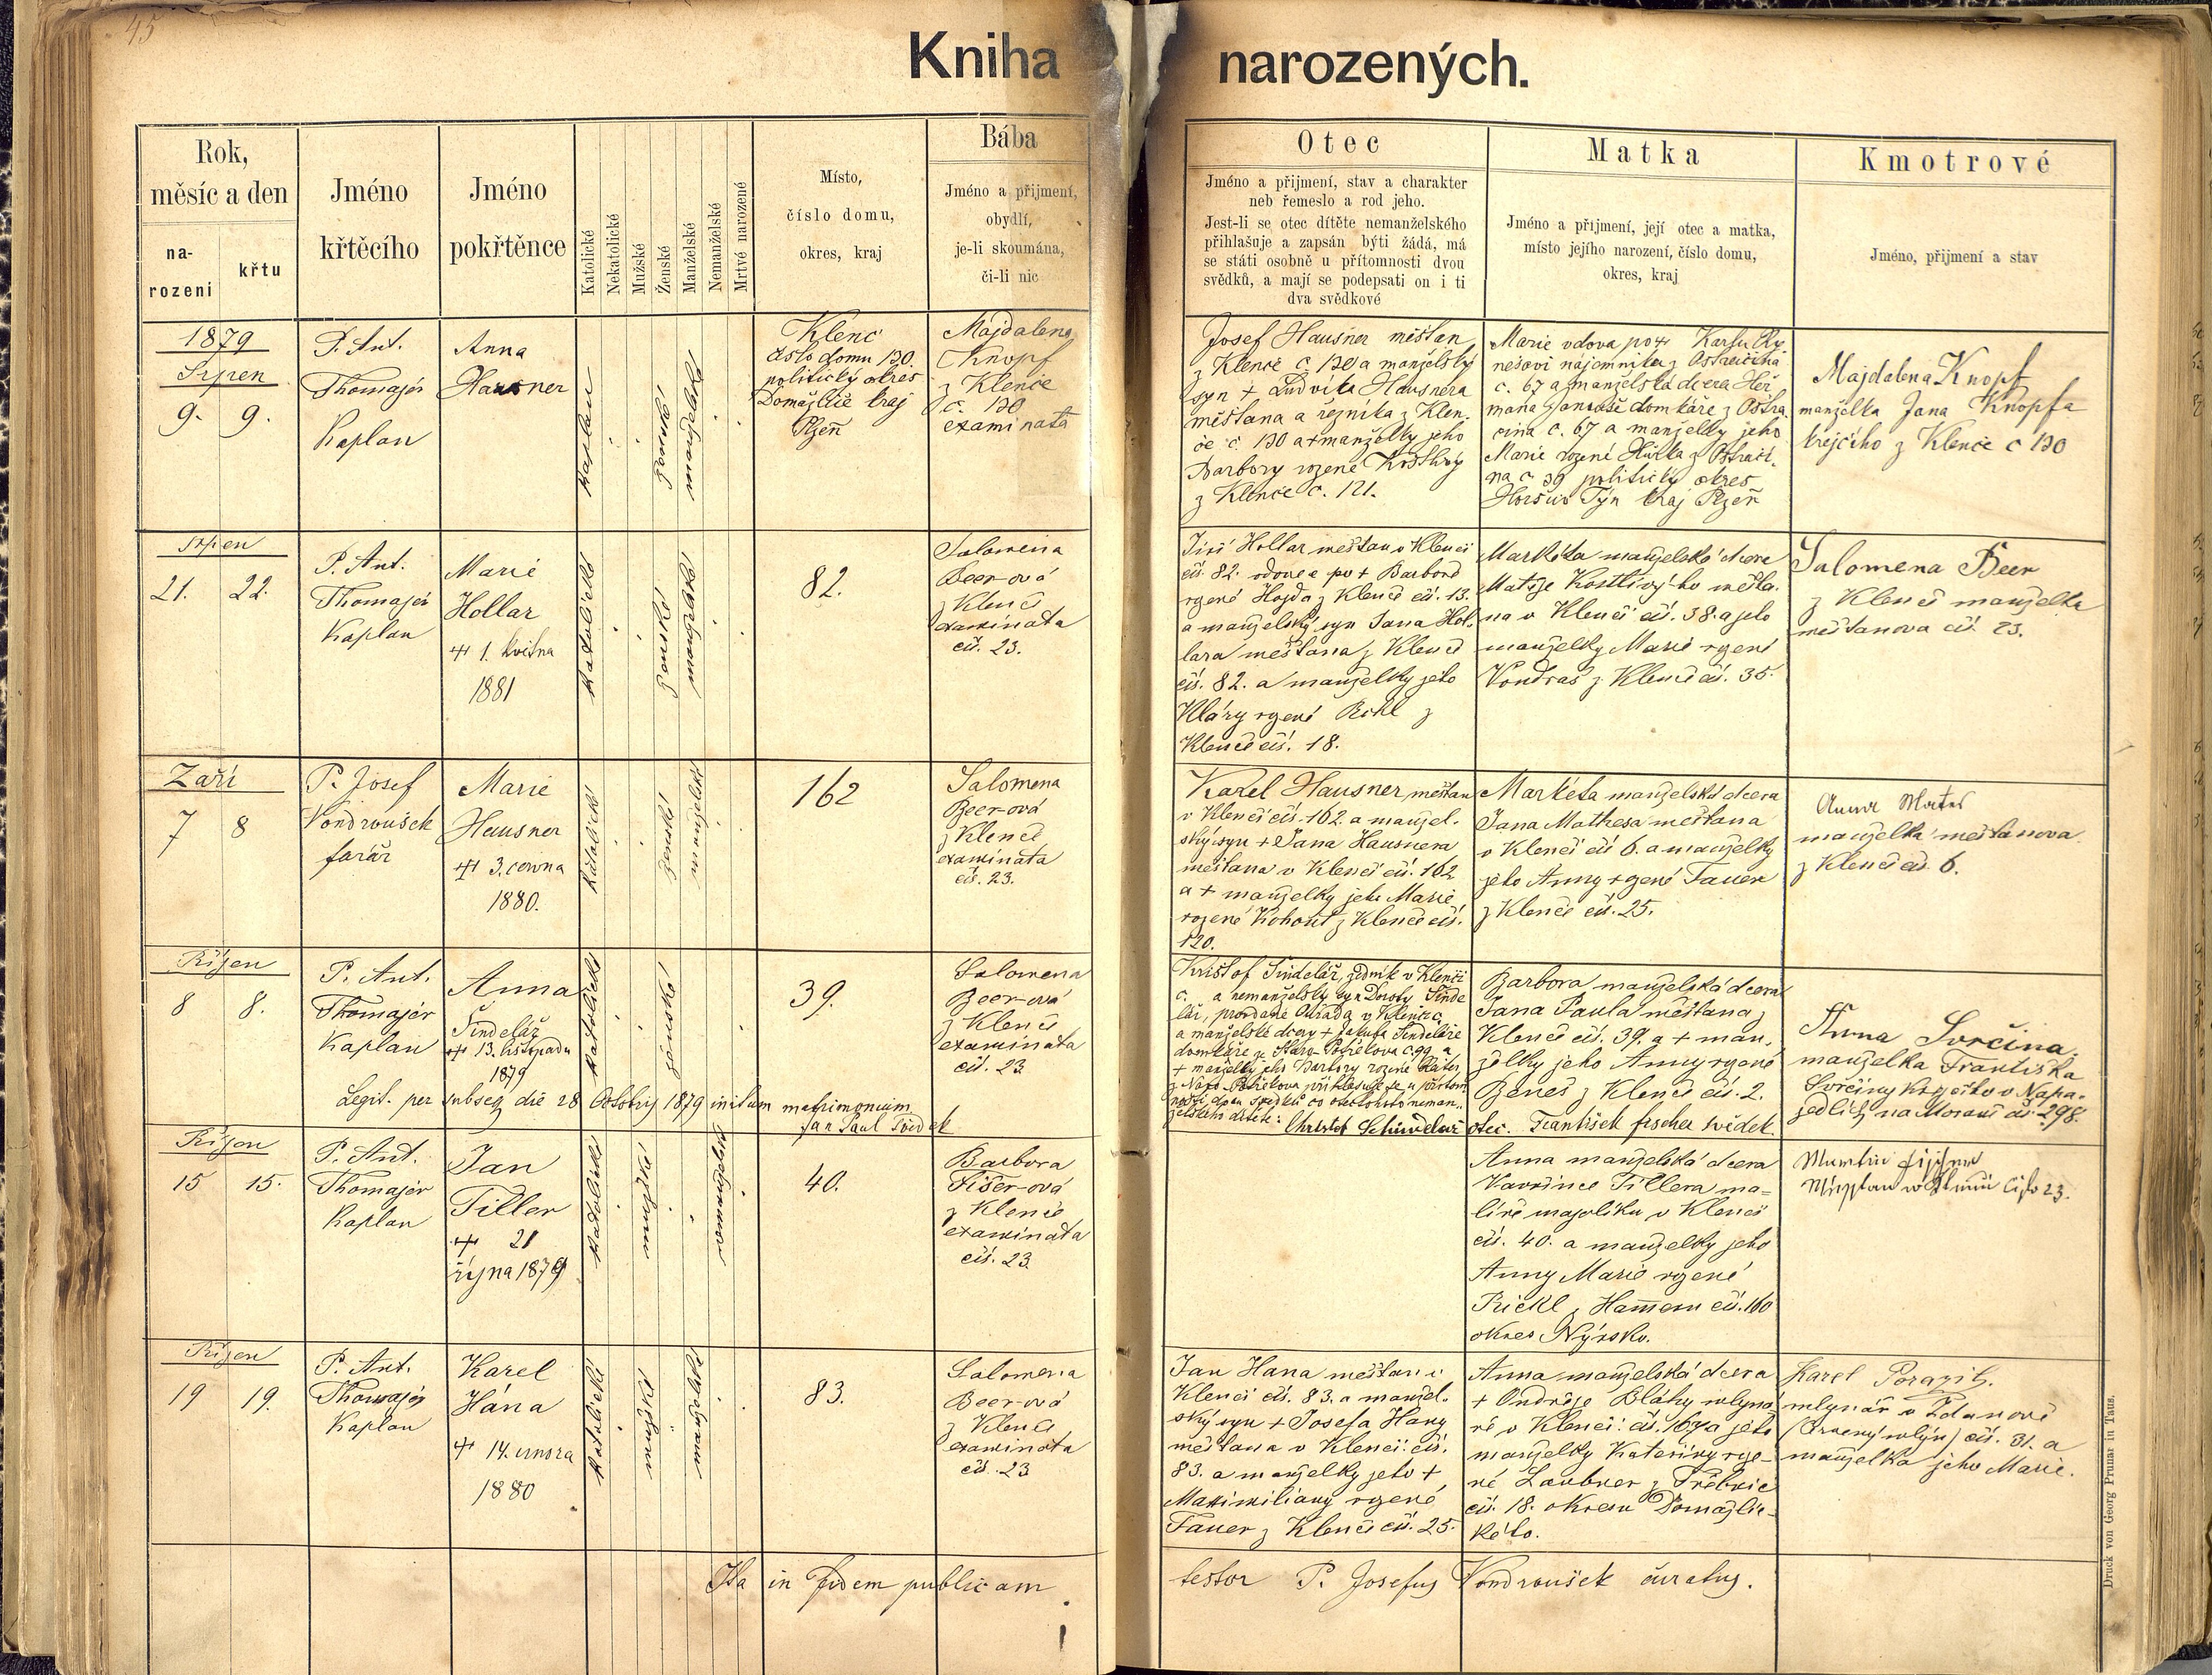 45
Kniha narozených.
Rok,
měsíc a den
na-
rozeni
křtu
Jméno
křtěcího
Jméno
pokřtěnce
Katolické
Nekatolické
Mužské
Ženské
Manželské
Nemanželské
Mrtvé narozené
Místo,
číslo domu,
okres, kraj
Bába
Jméno a přijmení,
obydlí,
je-li skoumána,
či-li nic
Otec
Jméno a přijmení, stav a charakter
neb řemeslo a rod jeho.
Jest-li se otec dítěte nemanželského
přihlašuje a zapsán býti žádá, má
se státi osobně u přítomnosti dvou
svědků, a mají se podepsati on i ti
dva svědkové
Matka
Jméno a přijmení, její otec a matka,
místo jejího narození, číslo domu,
okres, kraj
Kmotrové
Jméno, přijmení a stav
1879
Srpen
9. 9.
P. Ant.
Thomajer
Kaplan
Anna
Hausner
ženské
manželské
Klenč
číslo domu 130.
politický okres
Domažlice kraj
Plzeň
Majdalena
Knopf
z Klenče
č. 130
examinata
Josef Hausner měšťan
z Klenče č. 130 a manželský
syn + Ludvika Hausnera
měštana a řezníka z Klen.
če č. 130 a + manželky jeho
Barbory rozené
z Klenče č. 121.
Marie vdova po +
č. 67 a manželská dcera
domkáře z
č. 67 a manželky jeho
Marie rozené
na č 39 politický okres
Horšův Týn kraj Plzeň
Majdalena Knopf
manželka Jana Knopfa
krejčího z Klenče č 130
Srpen
21. 22.
P. Ant.
Thomajer
Kaplan
Marie
Hollar
+ 1. května
1881
katolické
ženské
manželské
82.
Salomena
Beer-ová
z Klenč
examinata
čís. 23.
Jiří Hollar měštan v Klenči
čís. 82. vdovec po + Barboře
rzené Hojda z Klenče čís. 13.
a manželský syn Jana Hol.
lara měštana z Klenče
čís. 82. a manželky jeho
Kláry rzené z
Klenče čís. 18.
Markéta manželská dcera
Matěje Kostlivý-ho měšta.
na v Klenči čís. 38. a jeho
manželky Marie rzené
Vondraš z Klenče čís. 35.
Salomena Beer
z Klenče manželka
měštanova čís. 23.
Září
7 8
P. Josef
Vondroušek
farář
Marie
Hausner
+ 3. června
1880.
katolické
ženské
manželské
162
Salomena
Beer-ová
z Klenče
examinata
čís. 23.
Karel Hausner měštan
v Klenči čís. 162. a manžel.
ský syn + Jana Hausnera
měštana v Klenči čís. 162
a + manželky jeho Marie
rozené Kohout z Klenče čís.
120.
Markéta manželská dcera
Jana Mathesa měštana
v Klenči čís 6. a manželky
jeho Anny rzené Tauer
z Klenče čís. 25.
Anna Mates
manželka měštanova
z Klenče čís. 6.
Říjen
8 8.
P. Ant.
Thomajer
Kaplan
Anna
Šindelář
+ 13. listopadu
1879
katolické
ženské
39.
Salomena
Beer-ová
z Klenče
examinata
čís. 23
Krištof Šindelář, zedník v Klenči
č. a nemanželský syn Doroty Šinde
lář, provdané v Klenči
a manželské dcery + Jakuba Šindeláře
domkáře ze Starg. č. 99 a
+ manželky jeho Barbory rozené
z přihlašuje se u přítom
nosti dvou svědků co otec neman.
želskému dítěti: Christof Schindelař otec. František fischer svědek
Barbora manželská dcera
Jana Paula měštana z
Klenče čís. 39. a + man.
želky jeho Anny rzené
Beneš z Klenče čís. 2.
Anna Svrčina,
manželka Františka
Svrčiny v Napa-
jedlích na Moravě čís. 298.
Legit. per subseq die 28 Octobris 1879 initum matrimonium
Jan Paul Svědek
Říjen
15 15.
P. Ant.
Thomajer
Kaplan
Jan
Tiller
+ 21
října 1879
katolické
mužské
nemanželské
40.
Barbora
Fišer-ová
z Klenče
examinata
čís. 23.
Anna manželská dcera
Vavřince Tillera ma-
líře majoliku v Klenči
čís. 40. a manželky jeho
Anny Marie rzené
Prickl z Hammeru čís. 160
okres Nýrsko.
Martin Fischer
23.
Říjen
19 19.
P. Ant.
Thomajer
Kaplan
Karel
Hána
+ 14. února
1880
katolické
mužské
manželské
83.
Salomena
Beer-ová
z Klenče
examinata
čís. 23
Jan Hana měštan v
Klenči čís. 83. a manžel.
ský syn + Josefa Hany
měštana v Klenči čís.
83. a manželky jeho +
Maximiliany rzené
Tauer z Klenče čís. 25.
Anna manželská dcera
+ Ondřeje Bláhy mlyná-
ře v Klenči: čís. 167 a jeho
manželky Kateřiny rze-
né Laubner z
čís. 18. okresu Domažlic-
kého.
Karel
mlynář v Ždanově
(Červený mlýn) čís. 31. a
manželka jeho Marie.
Ita in fidem publicam testor P. Josefus Vondroušek curatus.
Druck von Georg Prunar in Taus.